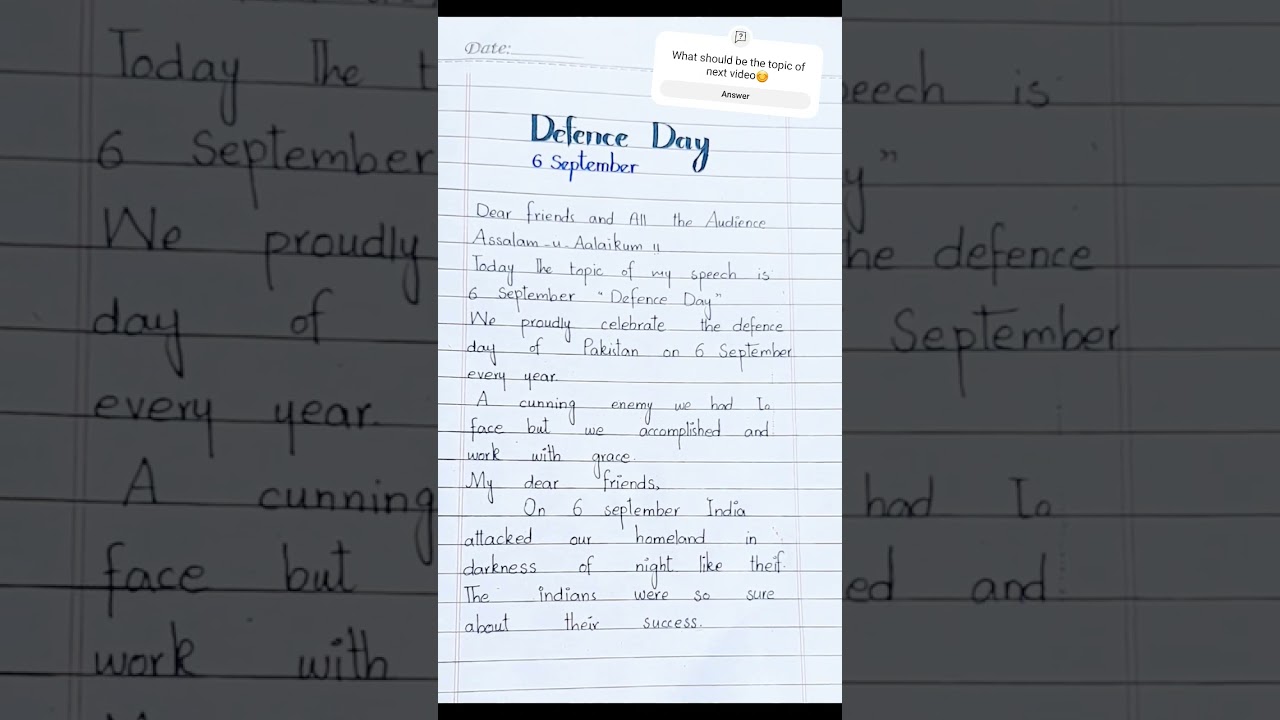 Date:
What should be the topic of
next video😊
Answer
Defence Day
6 September
Dear friends and All the Audience
Assalam-u-Aalaikum !!
Today The topic of my speech is
6 September "Defence Day"
We proudly celebrate the defence
day of Pakistan on 6 September
every year.
A cunning enemy we had To
face but we accomplished and
work with grace.
My dear friends,
On 6 september India
attacked our homeland in
darkness of night like theif.
The indians were so sure
about their success.